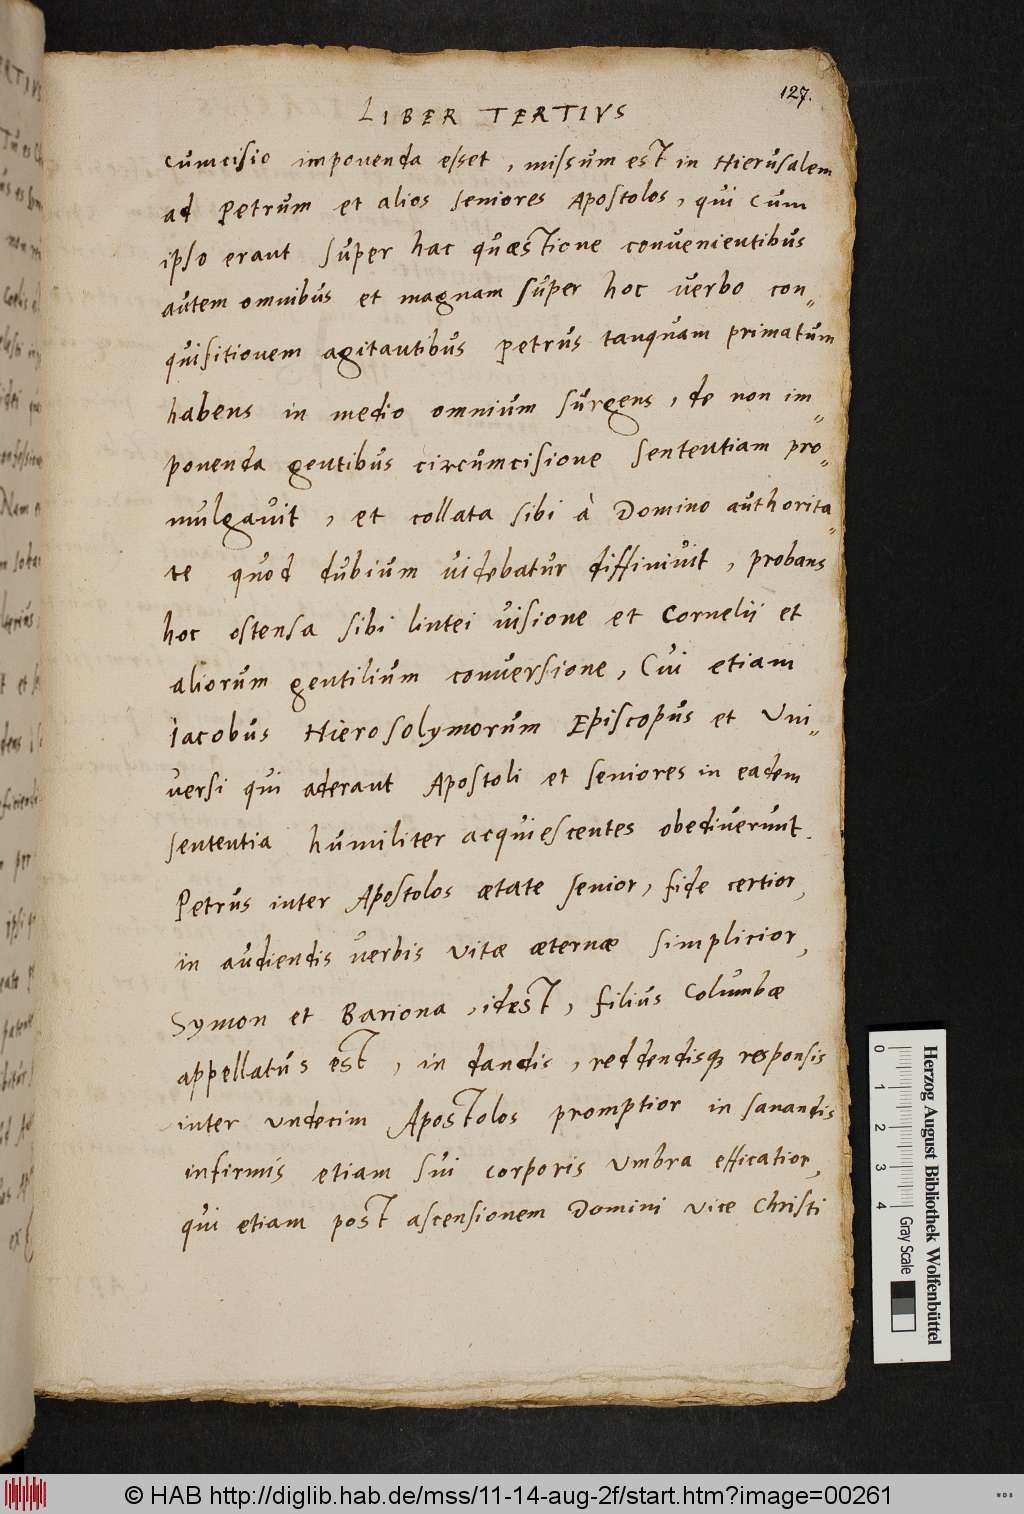 127.
LIBER TERTIVS
cumcisio imponenda esset, missum est in Hierusalem
ad Petrum et alios seniores Apostolos, qui cum
ipso erant super hac quæstione convenientibus
autem omnibus et magnam super hoc verbo con„
quisitionem agitantibus Petrus tanquam primatum
habens in medio omnium surgens, de non im„
ponenda gentibus circumcisione sententiam pro„
mulgavit, et collata sibi à Domino authorita„
te quod dubium videbatur diffinivit, probans
hoc ostensa sibi lintei visione et Cornelii et
aliorum gentilium conversione, Cui etiam
Iacobus Hierosolymorum Episcopus et Uni„
versi qui aderant Apostoli et seniores in eadem
sententia humiliter acquiescentes obediverunt.
Petrus inter Apostolos ætate senior, fide certior,
in audiendis verbis vitæ æternæ simplicior,
Symon et Bariona, idest, filius Columbæ
appellatus est, in dandis, reddendisque responsis
inter undecim Apostolos promptior in sanandis
infirmis etiam sui corporis umbra efficatior,
qui etiam post ascensionem Domini vice Christi
0 1 2 3 4
Gray Scale
Herzog August Bibliothek Wolfenbüttel
© HAB http://diglib.hab.de/mss/11-14-aug-2f/start.htm?image=00261